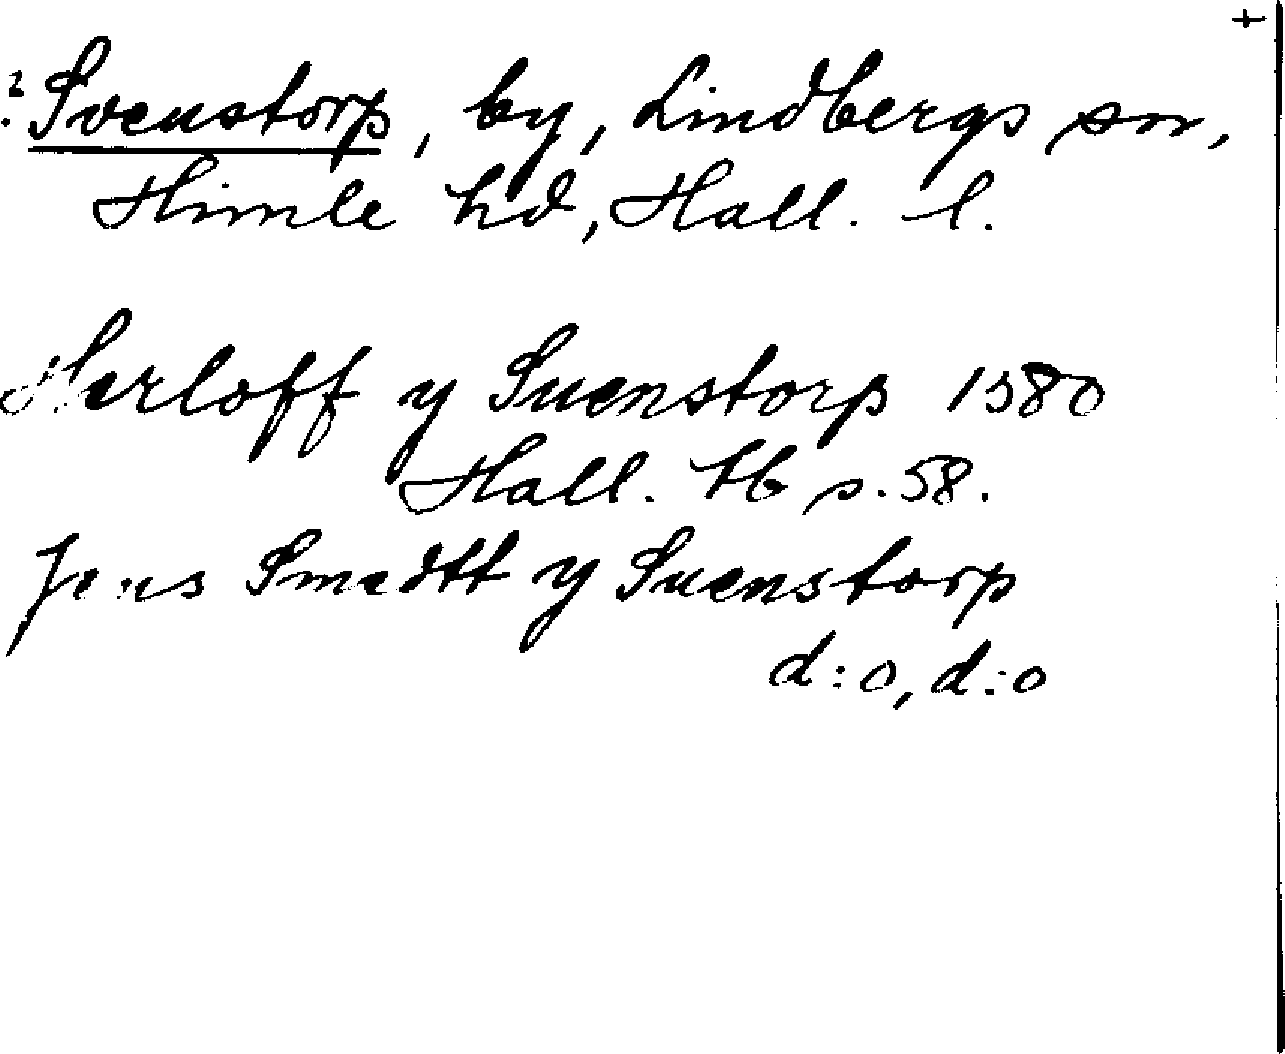 +
: Svenstorp, by, Lindbergs sn,
Himle hd, Hall. l.
Herloff y Suenstorp 1580
Hall. tb s. 58.
Jens Smedtt y Suenstorp
d:o, d:o